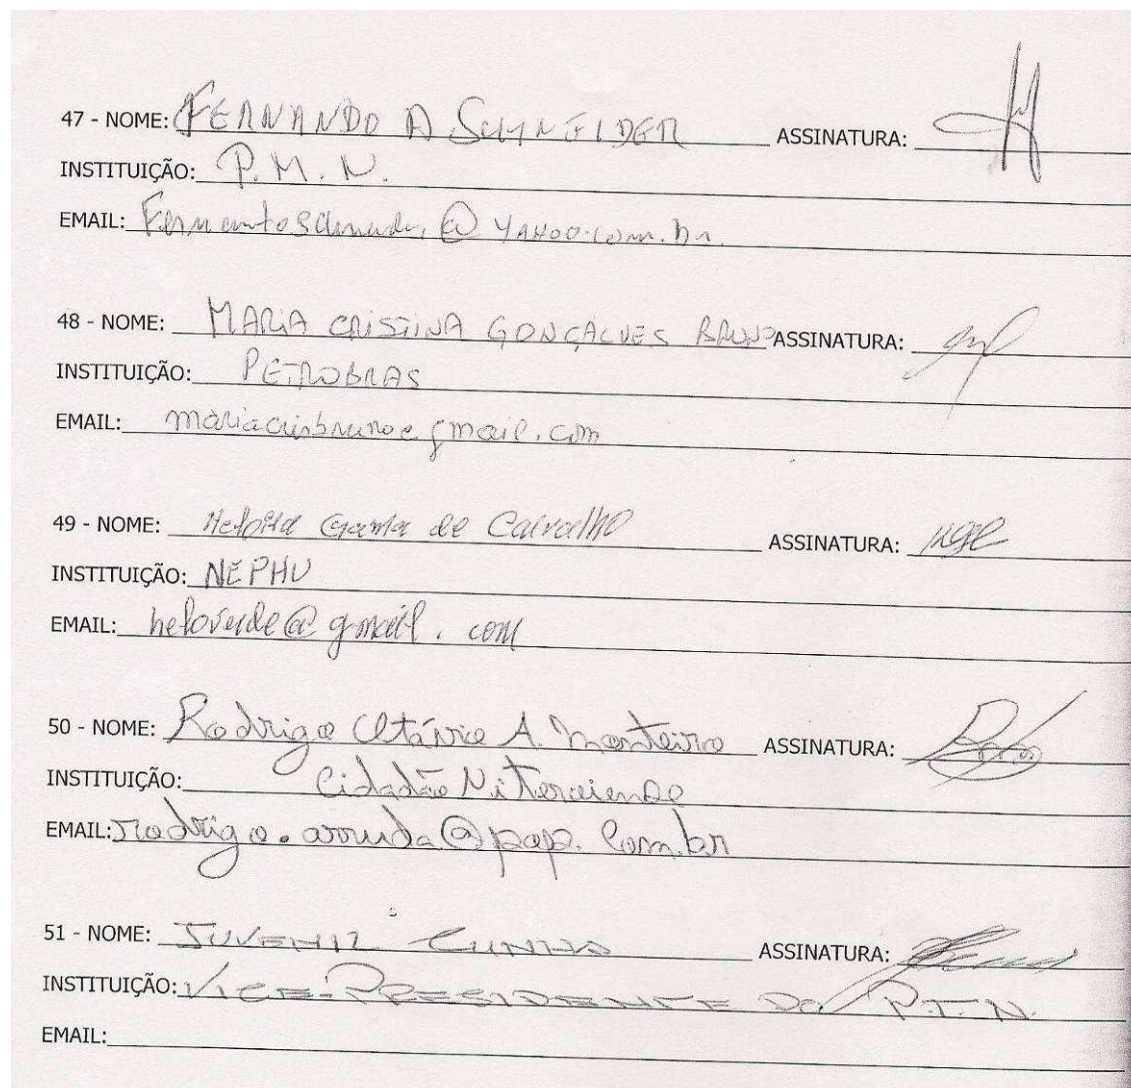 47 - NOME: FERNANDO A SCHNEIDER ASSINATURA:
INSTITUIÇÃO: P. M. N.
EMAIL: @ YAHOO.com.br
48 - NOME: MARIA CRISTINA GONÇALVES BRUNO ASSINATURA:
INSTITUIÇÃO: PETROBRAS
EMAIL: mariacrisbruno@gmail.com
49 - NOME: Heloisa Gama de Carvalho ASSINATURA:
INSTITUIÇÃO: NEPHU
EMAIL: heloverde@gmail.com
50 - NOME: Rodrigo Otávio A. Monteiro ASSINATURA:
INSTITUIÇÃO: Cidadão Niteroiense
EMAIL: rodrigo.arruda@pop.com.br
51 - NOME: JUVENIL CUNHA ASSINATURA:
INSTITUIÇÃO: VICE-PRESIDENTE DO P.T.N.
EMAIL: